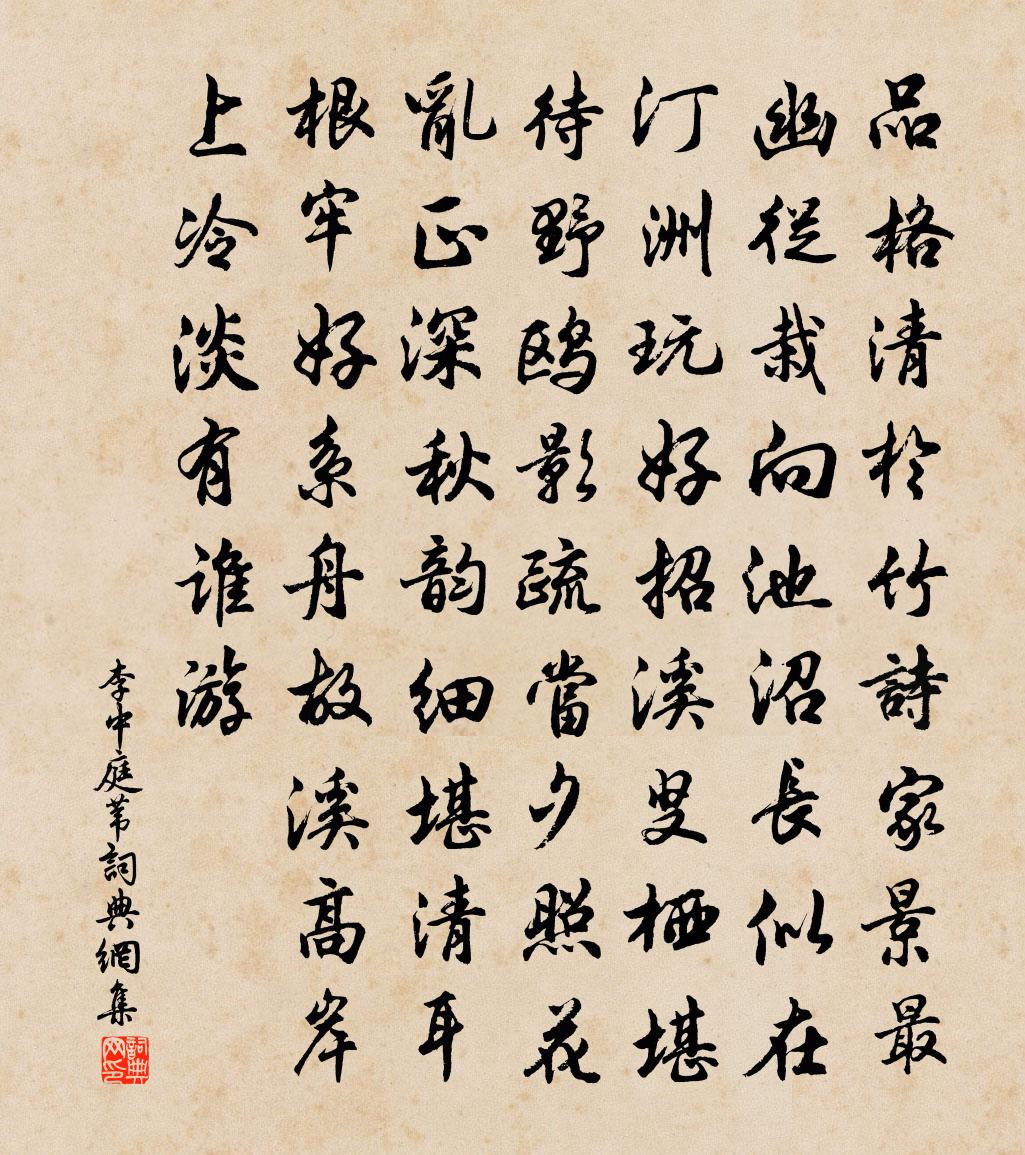 品格清於竹詩家景最
幽從栽向池沼長似在
汀洲玩好招溪叟栖堪
待野鸥影疏當夕照花
亂正深秋韵细堪清耳
根牢好系舟故溪高岸
上冷淡有誰游
李中庭苇詞典網集
詞典网印